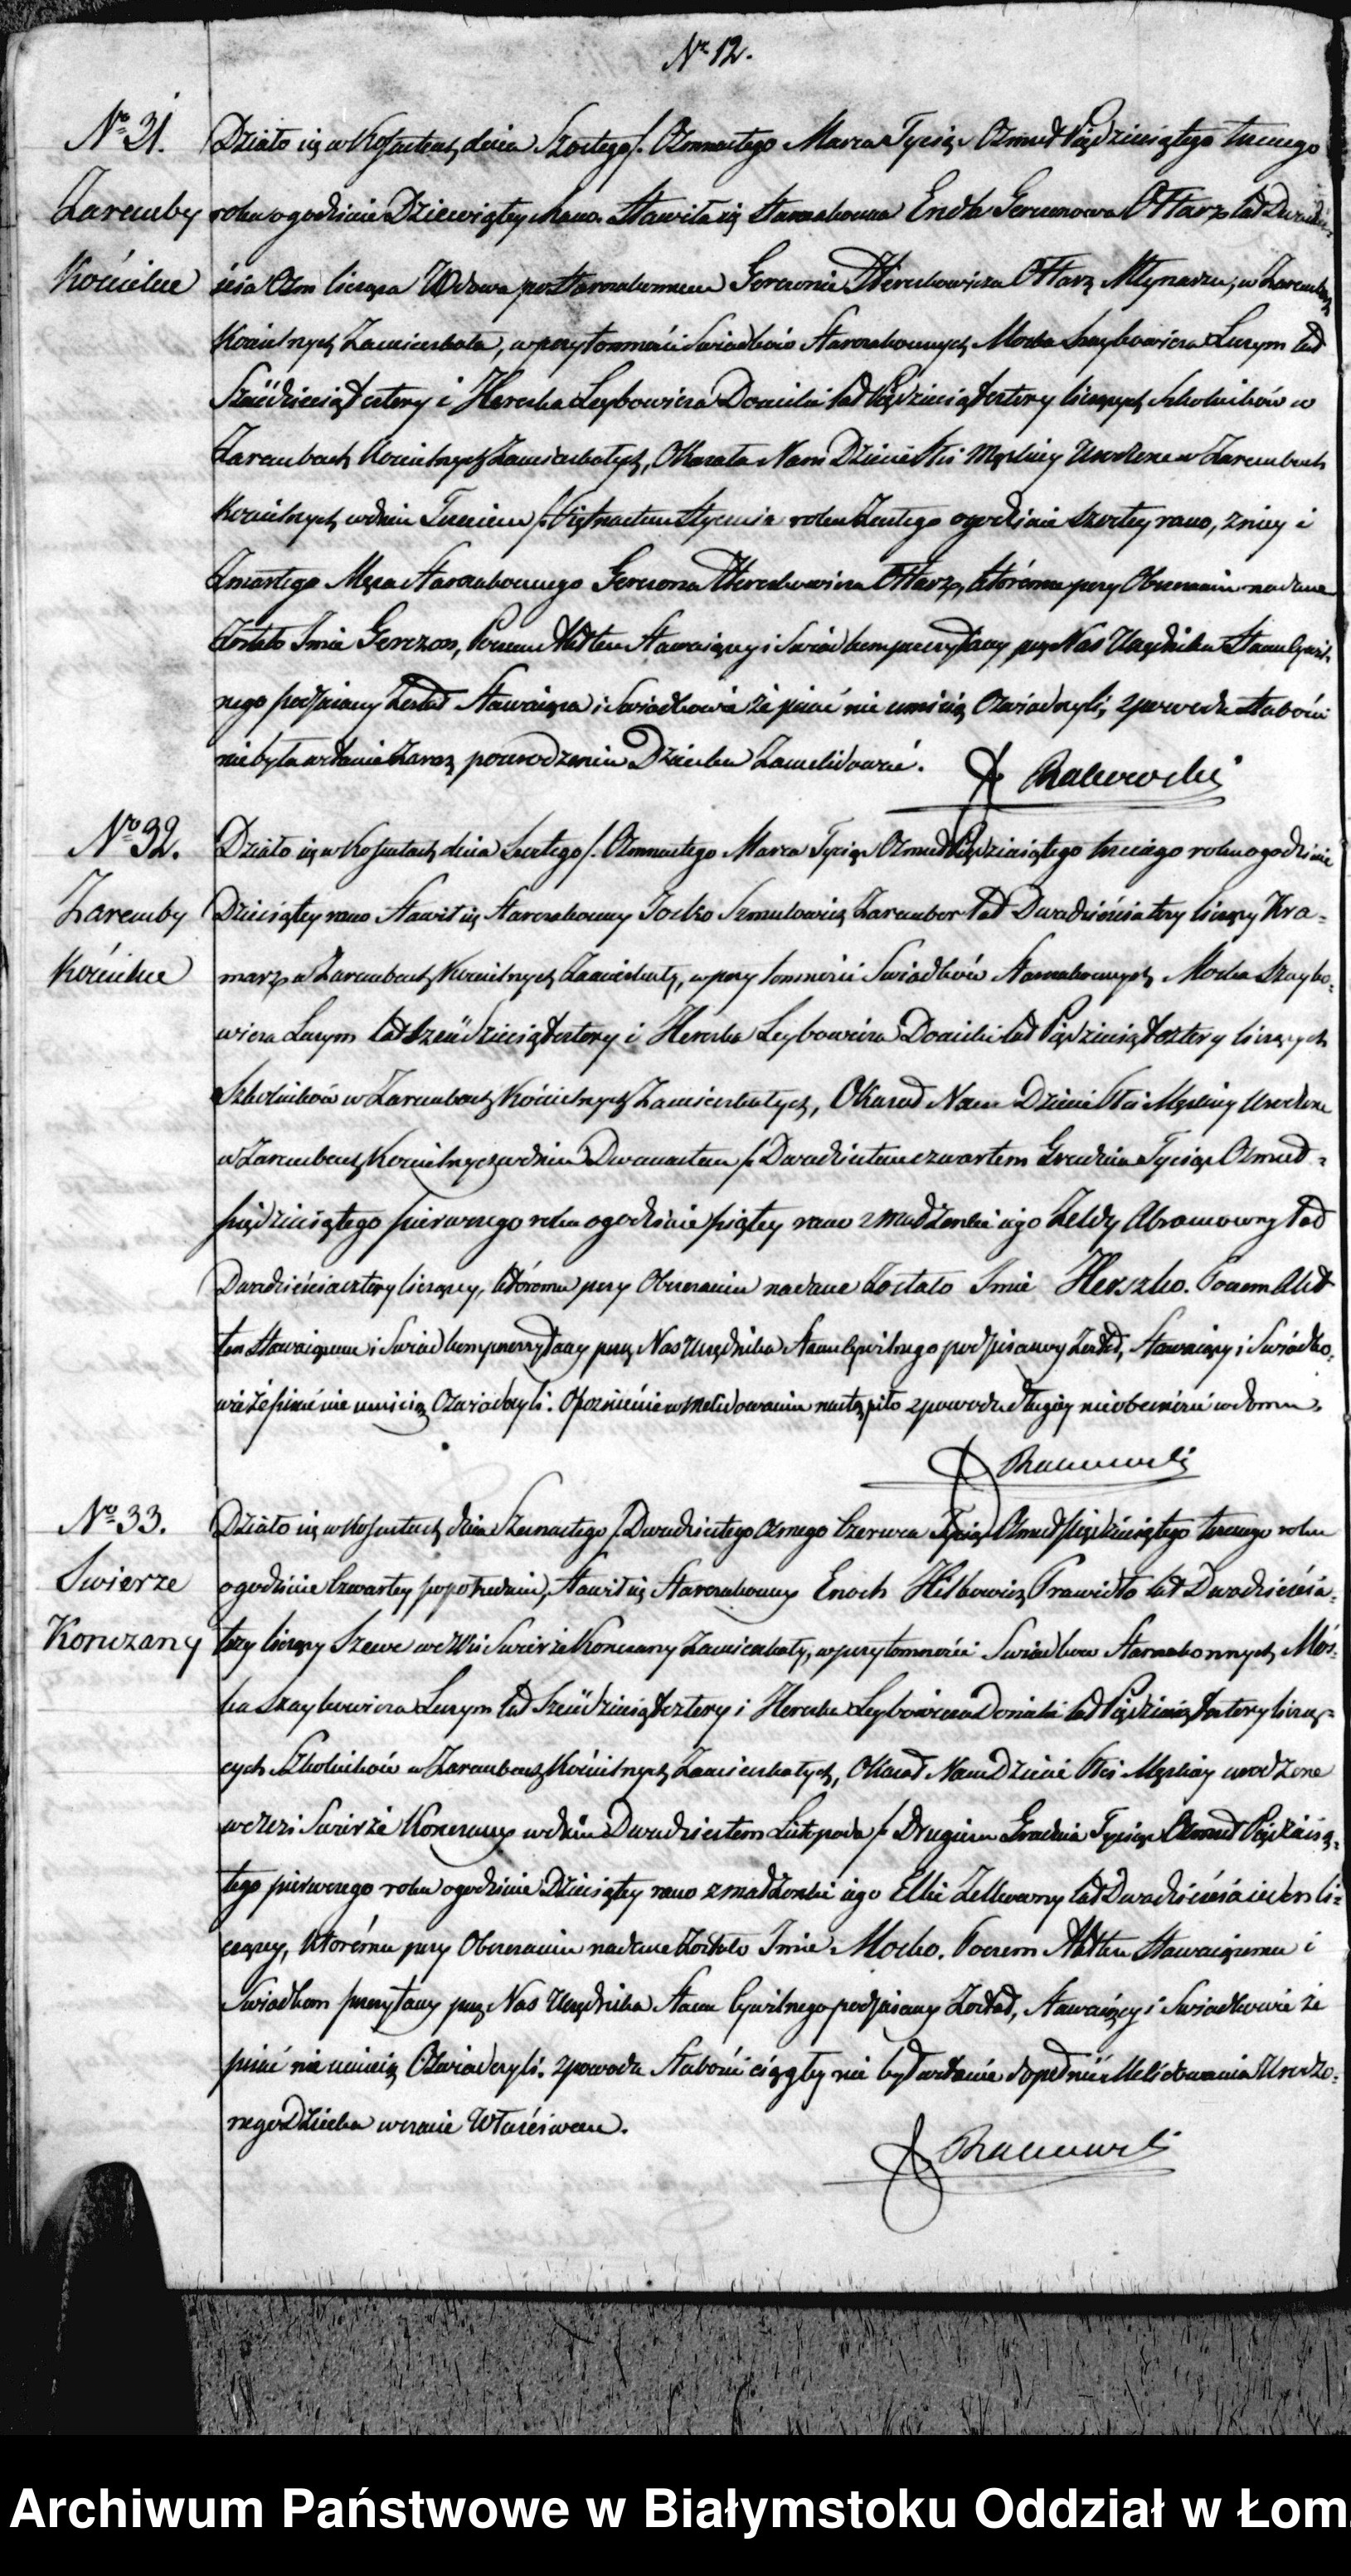 Nr 12.
No 31.
Zaremby
Kościelne
Działo się w Kossutach dnia Szostego /. Osmnastego Marca Tysiąc Ośmset Pięдziesiątego trzeciego
roku o godzinie Dziewiątey rano. Stawiła się Starozakonna Enda Gersonowa Ołtarz lat Dwadzie-
ścia Ośm licząca Wdowa po Starozakonnem Gersonie Herszkowiczu Ołtarz Młynarzu, w Zarembach
Kościelnych Zamieszkała, w przytomności Swiadków Starozakonnych Moska Szaybowicza Surym lat
Sześćdziesiąt cztery i Herszka Leybowicza Donicki lat Pięćdziesiąt cztery liczących Szkolników w
Zarembach Kościelnych Zamieszkałych, Okazała Nam Dziecie Płci Męskiey Urodzone w Zarembach
Kościelnych w dniu Trzecim /. Piętnastem Stycznia roku Zeszłego o godzinie szostey rano, z niey i
Zmarłego Męża Starozakonnego Gersona Herszkowicza Ołtarz, któremu przy Obrzezaniu nadane
Zostało Imie Gerszon, Poczem Akt ten Stawaiącey i Swiadkom przeczytany przez Nas Urzędnika Stanu Cywil-
nego podpisany Został Stawaiąca i Swiadkowie że pisać nie umieią Oświadczyli, z powodu słabości
nie była w stanie zaraz po urodzeniu Dziecka Zameldować.
No 32.
Zaremby
Kościelne
Działo się w Kossutach dnia Szostego /. Osmnastego Marca Tysiąc Ośmset Pięćdziesiątego trzeciego roku o godzinie
Dziesiątey rano Stawił się Starozakonny Josko Szmulowicz Zarember lat Dwadzieścia trzy liczący Kra-
marz w Zarembach Kościelnych Zamieszkały, w przytomności Swiadków Starozakonnych Moska Szaybo-
wicza Surym lat Sześćdziesiąt cztery i Herszka Leybowicza Donicki lat Pięćdziesiąt cztery liczących
Szkolników w Zarembach Kościelnych Zamieszkałych, Okazał Nam Dziecie Płci Męskiey Urodzone
w Zarembach Kościelnych w dniu Dwunastem /. Dwudziestem czwartem Grudnia Tysiąc Ośmset-
pięćdziesiątego pierwszego roku o godzinie piątey rano z małżonki iego Zeldy Abramowny lat
Dwadzieścia cztery liczącey, któremu przy Obrzezaniu nadane Zostało Imie Herszko. Poczem Akt
ten Stawaiącemu i Swiadkom przeczytany przez Nas Urzędnika Stanu Cywilnego podpisany Został, Stawaiący i Swiadko-
wie że pisać nie umieią Oświadczyli. Opoznienie w meldowaniu nastąpiło z powodu długiey nieobecności w domu.
No 33.
Swierze
Konczany
Działo się w Kossutach dnia Szesnastego /. Dwudziestego osmego Czerwca Tysiąc Ośmset pięćdziesiątego trzeciego roku
o godzinie Czwartey po południu, Stawił się Starozakonny Enoch Prawidło lat Dwadzieścia-
trzy liczący Szewc we Wsi Swierże Konczany Zamieszkały, w przytomności Swiadków Starozakonnych Mos-
ka Szaybowicza Surym lat Sześćdziesiąt cztery i Herszka Leybowicza Donicki lat Pięćdziesiąt cztery liczą-
cych Szkolników w Zarembach Kościelnych Zamieszkałych, Okazał Nam Dziecie Płci Męskiey urodzone
we Wsi Swierże Konczany w dniu Dwudziestem Listopada /. Drugiem Grudnia Tysiąc Ośmset Pięćdziesią-
tego pierwszego roku o godzinie Dziesiątey rano z małżonki iego Elki lat Dwadzieścia ieden li-
czącey, któremu przy Obrzezaniu nadane Zostało Imie Mosko. Poczem Akt ten Stawaiącemu i
Swiadkom przeczytany przez Nas Urzędnika Stanu Cywilnego podpisany Został, Stawaiący i Swiadkowie że
pisać nie umieią Oświadczyli. z powodu słabości ciągłey nie był w stanie dopełnić Meldowania Urodzo-
nego Dziecka w czasie Właściwem.
Archiwum Państwowe w Białymstoku Oddział w Łom